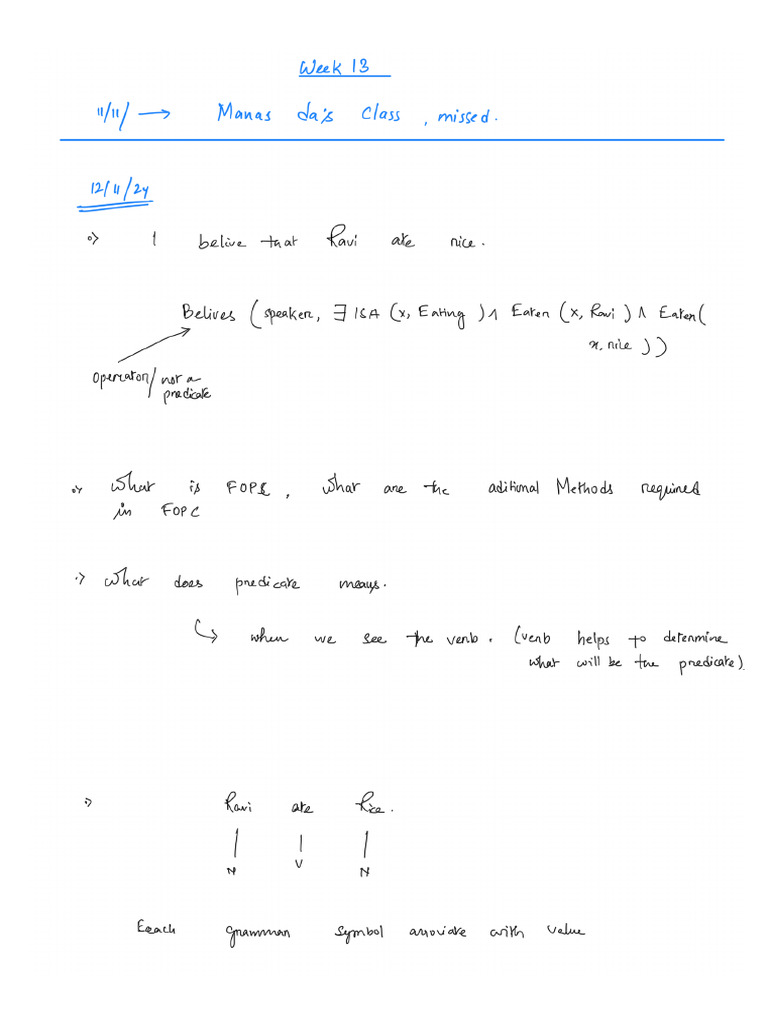 Week 13
11/11/ → Manas da's Class, missed.
12/11/24
•> I belive that Ravi ate rice.
Belives (speaker, ∃ ISA (x, Eating) ∧ Eater (x, Ravi) ∧ Eaten(
x, rice))
Operator/ not a
predicate
•> What is FOPC, What are the aditional Methods required
in FOPC
•> What does predicate means.
↳ when we see the verb. (verb helps to determine
what will be the predicate).
•> Ravi ate Rice.
N V N
Each grammar symbol associate with value